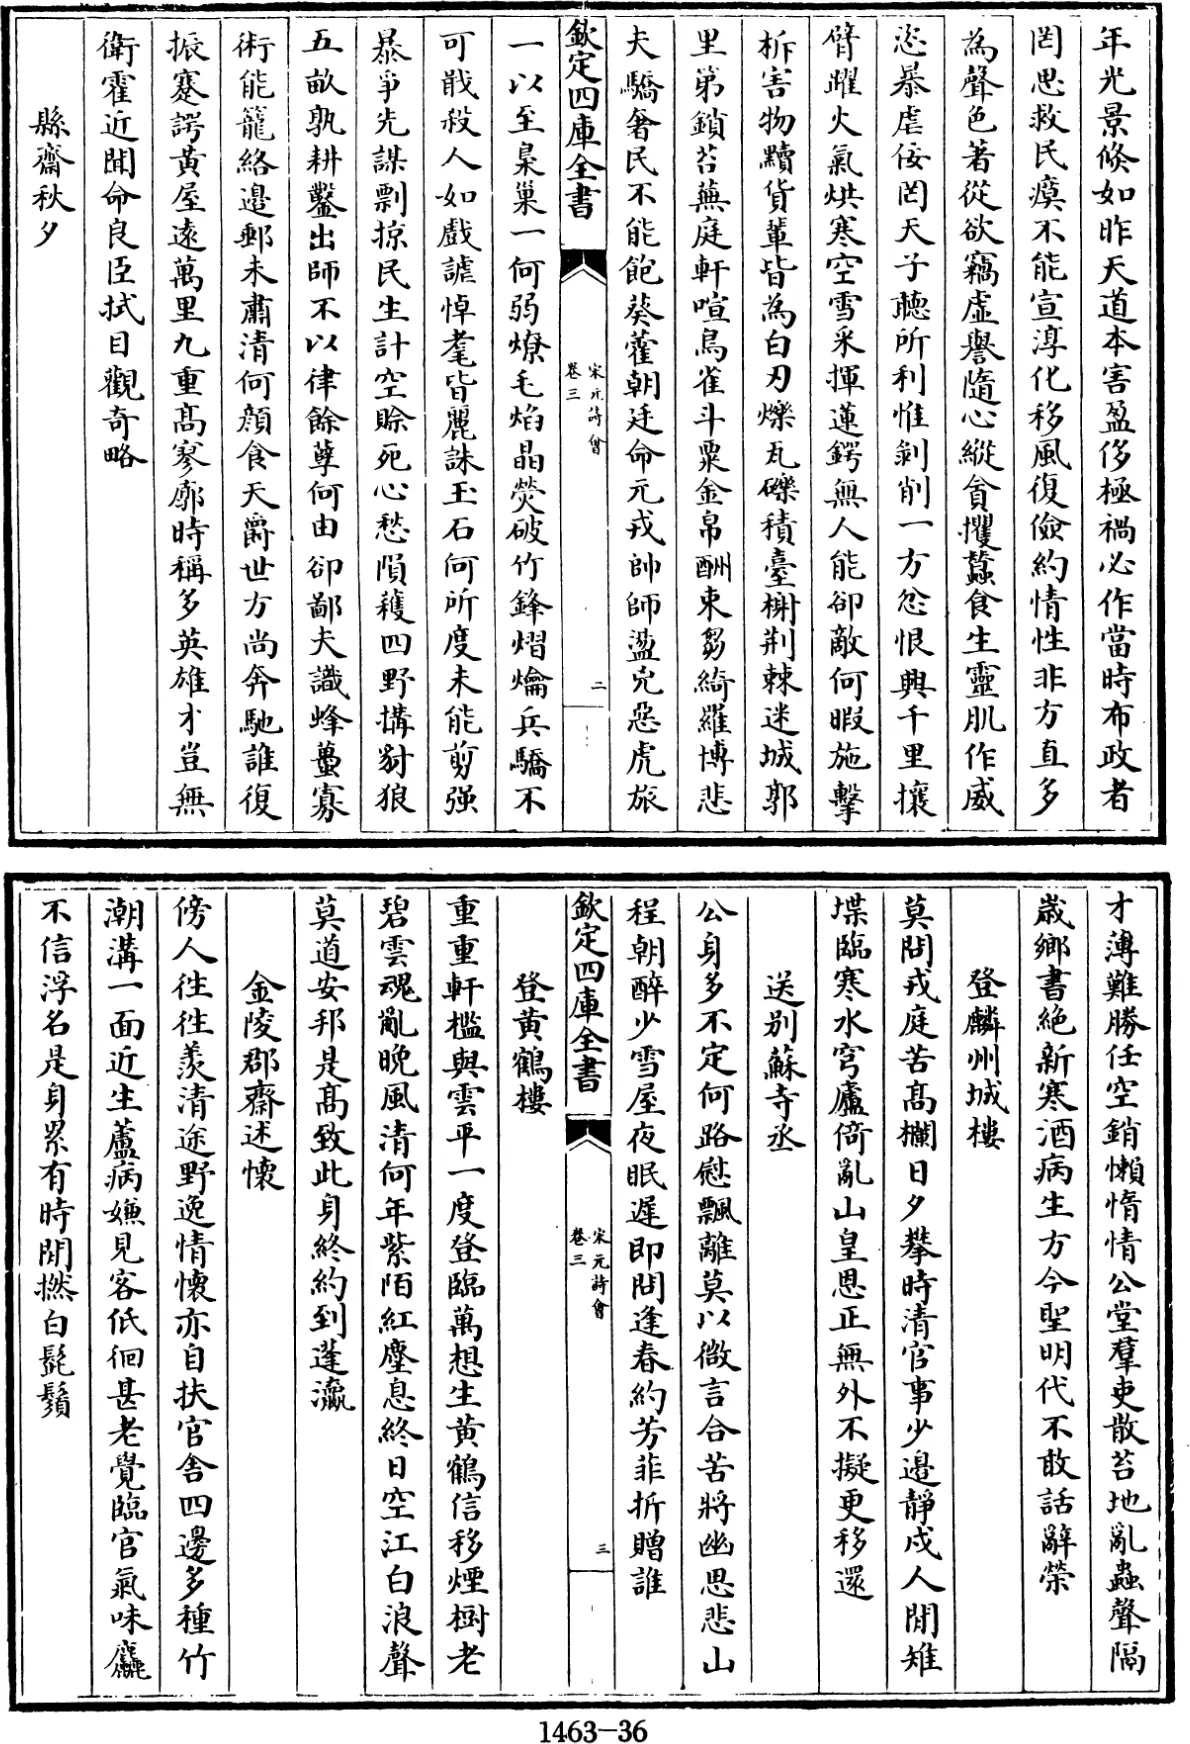 年光景倐如昨天道本害盈侈極禍必作當時布政者
罔思救民瘼不能宣淳化移風復儉約情性非方直多
為聲色著從欲竊虛譽隨心縱貪攫蠶食生靈肌作威
恣暴虐佞罔天子聽所利惟剝削一方忿恨興千里攘
臂躍火氣烘寒空雪采揮蓮鍔無人能卻敵何暇施擊
柝害物黷貨輩皆為白刃爍瓦礫積臺榭荆棘迷城郭
里第鎖苔蕪庭軒喧鳥雀斗粟金帛酬束芻綺羅博悲
夫驕奢民不能飽葵藿朝廷命元戎帥師盪兇惡虎旅
欽定四庫全書
宋元詩會
卷三
二
一以至梟巢一何弱燎毛焰晶熒破竹鋒熠爚兵驕不
可戢殺人如戲謔悼耄皆麗誅玉石何所度未能剪强
暴爭先謀剽掠民生計空賒死心愁隕穫四野搆豺狼
五畝孰耕鑿出師不以律餘孽何由卻鄙夫識蜂蠆寡
術能籠絡邉郵未肅清何顔食天爵世方尚奔馳誰復
振蹇諤黃屋遠萬里九重高寥廓時稱多英雄才豈無
衛霍近聞命良臣拭目觀奇略
縣齋秋夕
才薄難勝任空銷懶惰情公堂羣吏散苔地亂蟲聲隔
歲鄉書絶新寒酒病生方今聖明代不敢話辭榮
登麟州城樓
莫問戎庭苦高欄日夕攀時清官事少邉靜戍人閒雉
堞臨寒水穹廬倚亂山皇恩正無外不擬更移還
送别蘇寺丞
公身多不定何路慰飄離莫以微言合苦將幽思悲山
程朝醉少雪屋夜眠遲即問逢春約芳菲折贈誰
欽定四庫全書
宋元詩會
卷三
三
登黃鶴樓
重重軒檻與雲平一度登臨萬想生黃鶴信移煙樹老
碧雲魂亂晚風清何年紫陌紅塵息終日空江白浪聲
莫道安邦是高致此身終約到蓬瀛
金陵郡齋述懷
傍人往往羡清途野逸情懷亦自扶官舍四邊多種竹
潮溝一面近生蘆病嫌見客低徊甚老覺臨官氣味麤
不信浮名是身累有時閒撚白髭鬚
1463-36